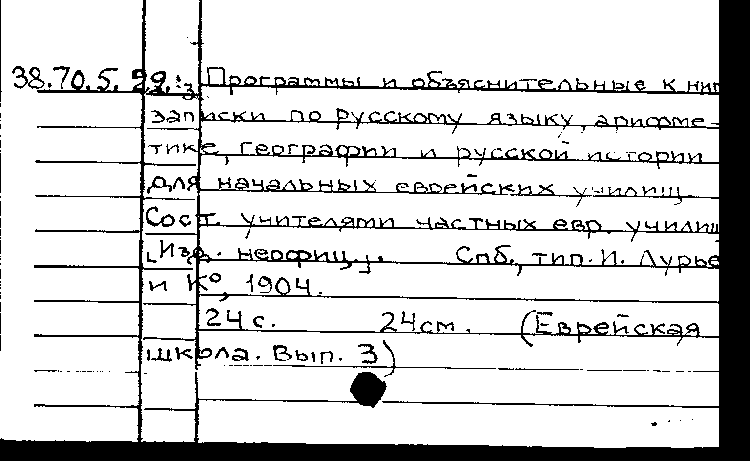 38.70.5.29.:3 Программы и объяснительные к ним
записки по русскому языку, арифме-
тике, географии и русской истории
для начальных еврейских училищ.
Сост. учителями частных евр. училищ
[Изд. неофиц.]. Спб., тип. И. Лурье
и К°, 1904.
24 с. 24 см. (Еврейская
школа. Вып. 3)